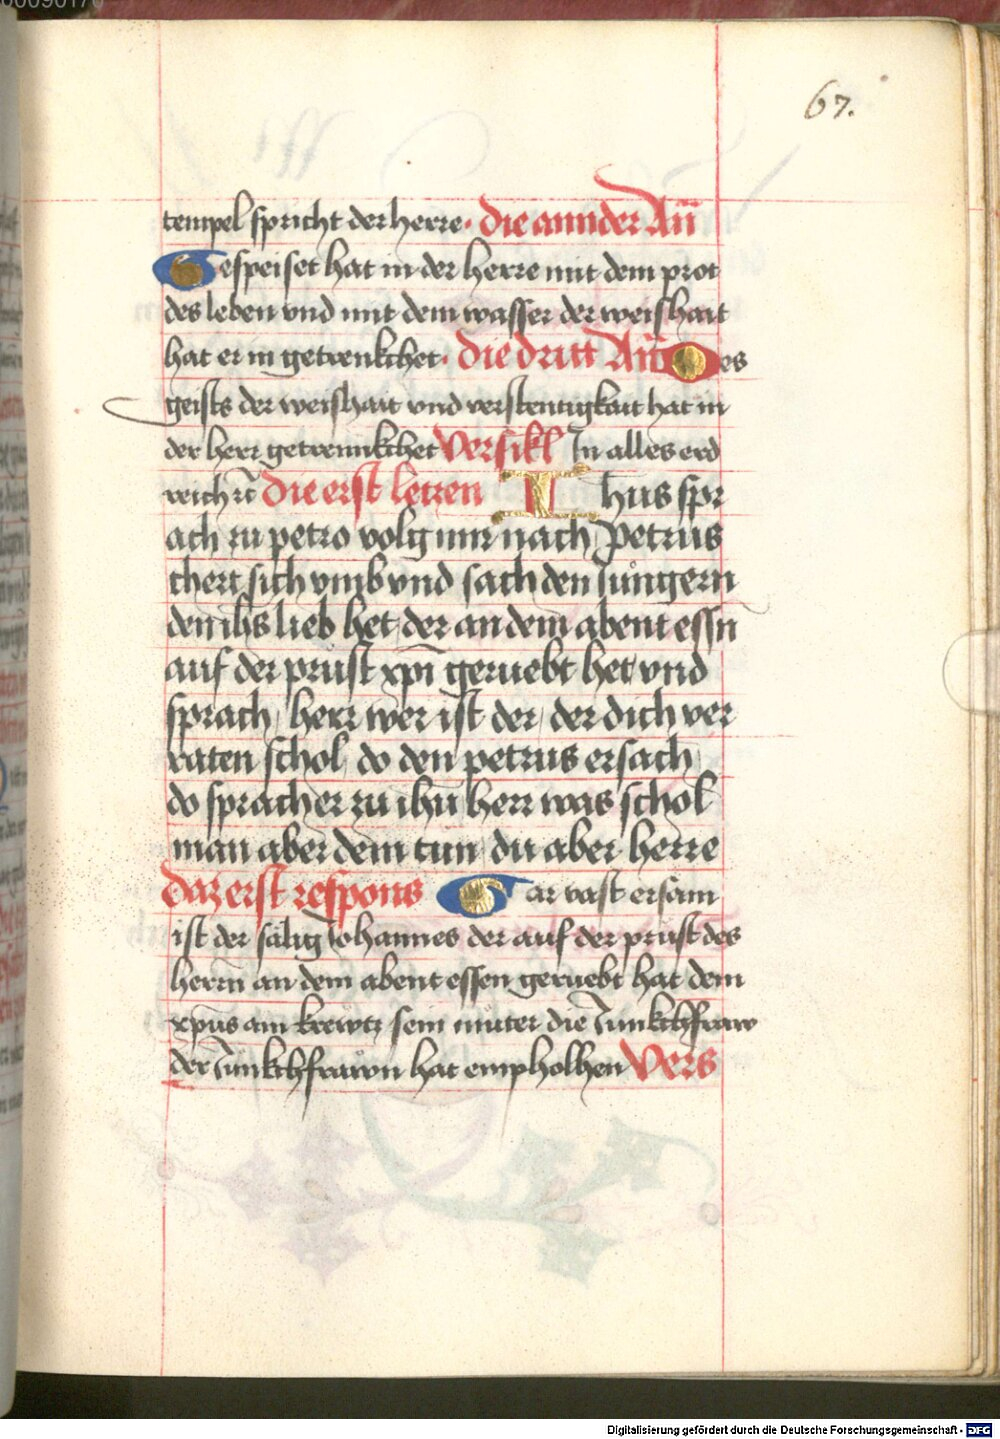 67.
tempel spricht der herre. die annder Añ
Gespeiset hat in der herre mit dem prot
des leben vnd mit dem wasser der weishait
hat er in getrenkchet. die dritt Añ Des
geists der weishait vnd verstentigkait hat in
der herr getrennkchet Versikl In alles erd
reich rc̄ die erst letzen Ihus spr
ach zu petro volg mir nach Petrus
chert sich vmb vnd sach den Jungern
den ihs lieb het der an dem abent essn
auf der prust xp̄i geruebt het vnd
sprach herr wer ist der der dich ver
raten schol do den petrus ersach
do sprach er zu ihū herr was schol
man aber dem tun du aber herre
daz erst respons Gar vast ersam
ist der sälig Johannes der auf der prust des
herrn an dem abent essen geruebt hat dem
xp̄us am krewtz sein muter die Junkchfraw
der Junkchfrawn hat empholhen Vers
Digitalisierung gefördert durch die Deutsche Forschungsgemeinschaft - DFG